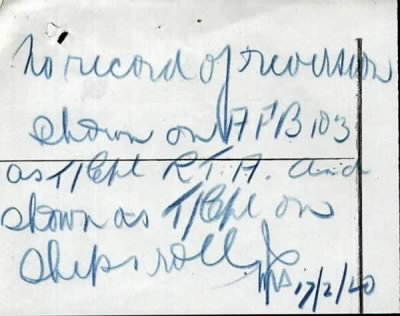 No record of reversion
shown on AFB 103
as T/Cpl R.T.A. and
shown as T/Cpl on
ships roll
17/2/20